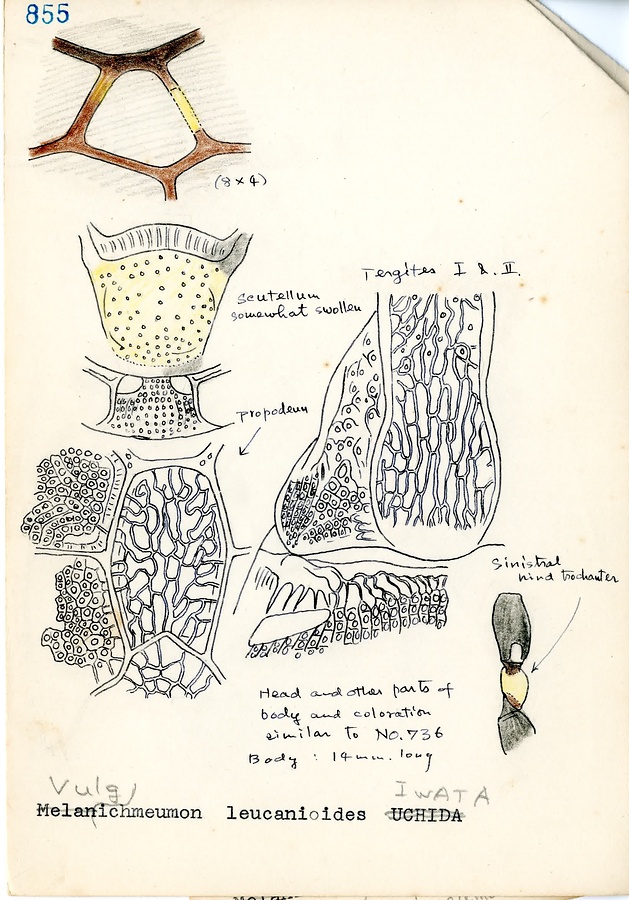 855
(8×4)
Scutellum
somewhat swollen
Tergites I & II.
Propodeum
Sinistral
hind trochanter
Head and other parts of
body and coloration
similar to No. 736
Body : 14 mm. long
Vulg
IWATA
Melanichmeumon leucanioides UCHIDA